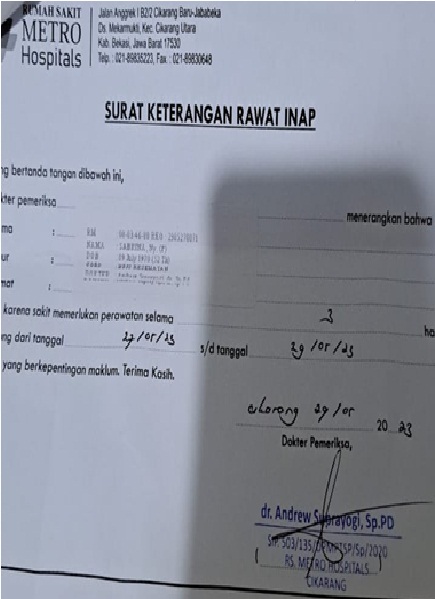 RUMAH SAKIT
METRO
Hospitals
Jalan Anggrek I B2/2 Cikarang Baru-Jababeka
Ds. Mekarmukti, Kec. Cikarang Utara
Kab. Bekasi, Jawa Barat 17530
Telp. : 021-89835223, Fax : 021-89830648
SURAT KETERANGAN RAWAT INAP
ng bertanda tangan dibawah ini,
kter pemeriksa
menerangkan bahwa
ma :
RM
NAMA
ur :
DOB
mat :
karena sakit memerlukan perawatan selama 3 ha
ng dari tanggal 27/05/23 s/d tanggal 29/05/23
yang berkepentingan maklum. Terima Kasih.
cikarang 29/05 20 23
Dokter Pemeriksa,
dr. Andrew Suprayogi, Sp.PD
RS. METRO HOSPITALS
CIKARANG